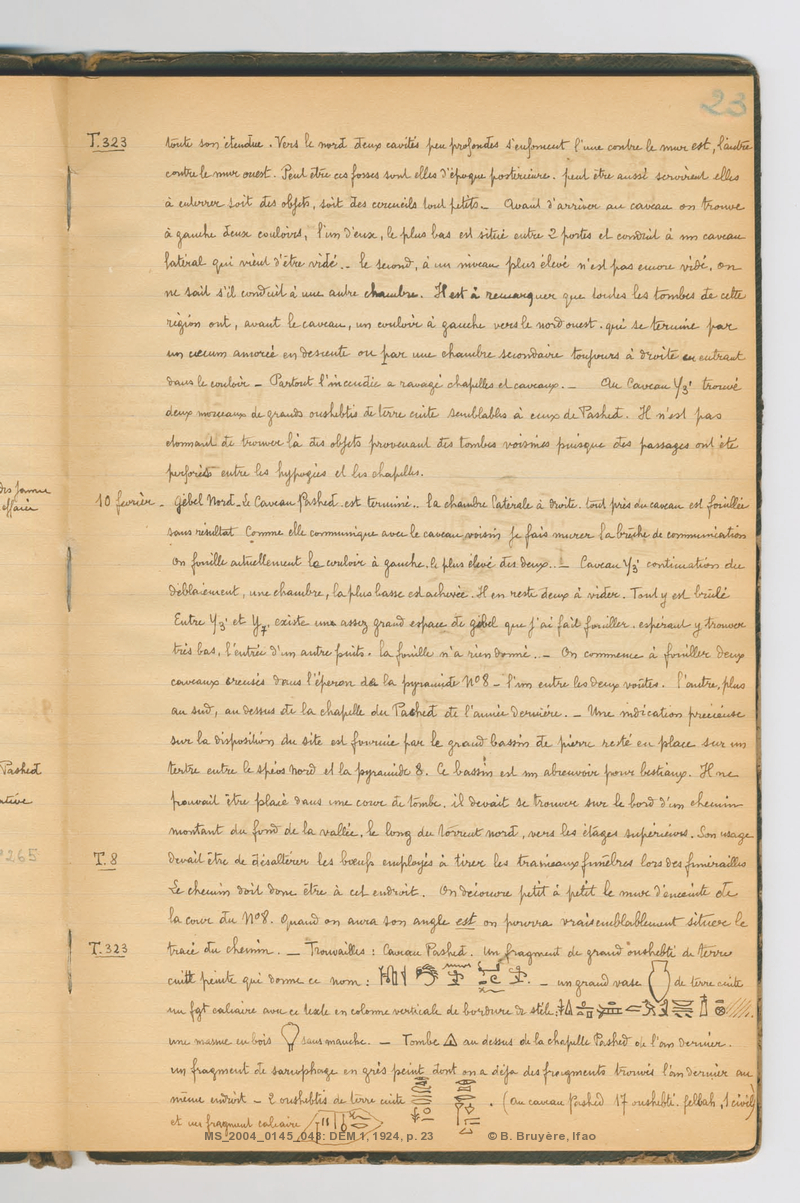 23
T.323 toute son étendue. Vers le nord deux cavités peu profondes s'enfoncent l'une contre le mur est, l'autre
contre le mur ouest. Peut être ces fosses sont elles d'époque postérieure. peut être aussi servirent elles
à enterrer soit des objets, soit des cercueils tout petits _ Avant d'arriver au caveau on trouve
à gauche deux couloirs, l'un d'eux, le plus bas est situé entre 2 portes et conduit à un caveau
latéral qui vient d'être vidé._ le second, à un niveau plus élevé n'est pas encore vidé, on
ne sait s'il conduit à une autre chambre. Il est à remarquer que toutes les tombes de cette
région ont, avant le caveau, un couloir à gauche vers le nord ouest. qui se termine par
un caecum amorcé en descente ou par une chambre secondaire toujours à droite en entrant
dans le couloir _ Partout l'incendie a ravagé chapelles et caveaux. _ Au Caveau Y3' trouvé
deux morceaux de grands oushebtis de terre cuite semblables à ceux de Pashed. Il n'est pas
étonnant de trouver là des objets provenant des tombes voisines puisque des passages ont été
perforés entre les hypogées et les chapelles.
10 février _ Gébel Nord _ Le Caveau Pashed est terminé._ la chambre latérale à droite tout près du caveau est fouillée
sans résultat Comme elle communique avec le caveau voisin je fais murer la brèche de communication
On fouille actuellement le couloir à gauche. le plus élevé des deux._ Caveau Y3' continuation du
déblaiement, une chambre, la plus basse est achevée. Il en reste deux à vider. Tout y est brûlé
Entre Y3' et Y7, existe une assez grand espace de gébel que j'ai fait fouiller. espérant y trouver
très bas, l'entrée d'un autre puits. la fouille n'a rien donné._ On commence à fouiller deux
caveaux creusés dans l'éperon de la pyramide N°8 _ l'un entre les deux voûtes. l'autre, plus
au sud, au dessus de la chapelle du Pashed de l'année dernière. _ Une indication précieuse
sur la disposition du site est fournie par le grand bassin de pierre resté en place sur un
tertre entre le spéos nord et la pyramide 8. Ce bassin est un abreuvoir pour bestiaux. Il ne
pouvait être placé dans une cour de tombe. il devait se trouver sur le bord d'un chemin
montant du fond de la vallée, le long du torrent nord, vers les étages supérieurs. Son usage
T.8 devait être de désaltérer les bœufs employés à tirer les traineaux funèbres lors des funérailles
Le chemin doit donc être à cet endroit. On découvre petit à petit le mur d'enceinte de
la cour du N°8. Quand on aura son angle est on pourra vraisemblablement situer le
T.323 tracé du chemin. _ Trouvailles : Caveau Pashed. Un fragment de grand oushebti de terre
cuite peinte qui donne ce nom : _ un grand vase de terre cuite
un fgt calcaire avec ce texte en colonne verticale de bordure de stèle :
une massue en bois sans manche. _ Tombe △ au dessus de la chapelle Pashed de l'an dernier.
un fragment de sarcophage en grès peint dont on a déjà des fragments trouvés l'an dernier au
même endroit _ 2 oushebtis de terre cuite . (Au caveau Pashed 17 oushebti. fellah, 1 civil)
et un fragment calcaire
Pashed
265
MS_2004_0145_043: DEM 1, 1924, p. 23 © B. Bruyère, Ifao